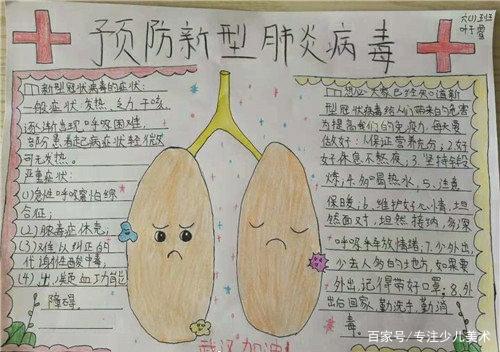 预防新型肺炎病毒
六(1)班
叶子雪
新型冠状病毒的症状:
一般症状:发热、乏力、干咳、
逐渐出现呼吸困难,
部分患者起病症状轻微,
可无发热。
严重症状:
(1)急性呼吸窘怕综
合征;
(2)脓毒症休克;
(3)难以纠正的
代谢性酸中毒;
(4)出、凝血功能
障碍
想必大家已经知道新
型冠状病毒给人们带来的危害
为提高我们的免疫力,每天要
做好:1.保证营养充分;2.好
好休息不熬夜,3.坚持
炼;4.多喝热水,5.注意
保暖;6.维护好心情,坦
然面对,坦然接纳,多深
呼吸来释放情绪;7.少外出,
少去人多的地方,如果要
外出,记得带好口罩。8.外
出后回家,勤洗手,勤消
毒。
武汉加油!
百家号/专注少儿美术